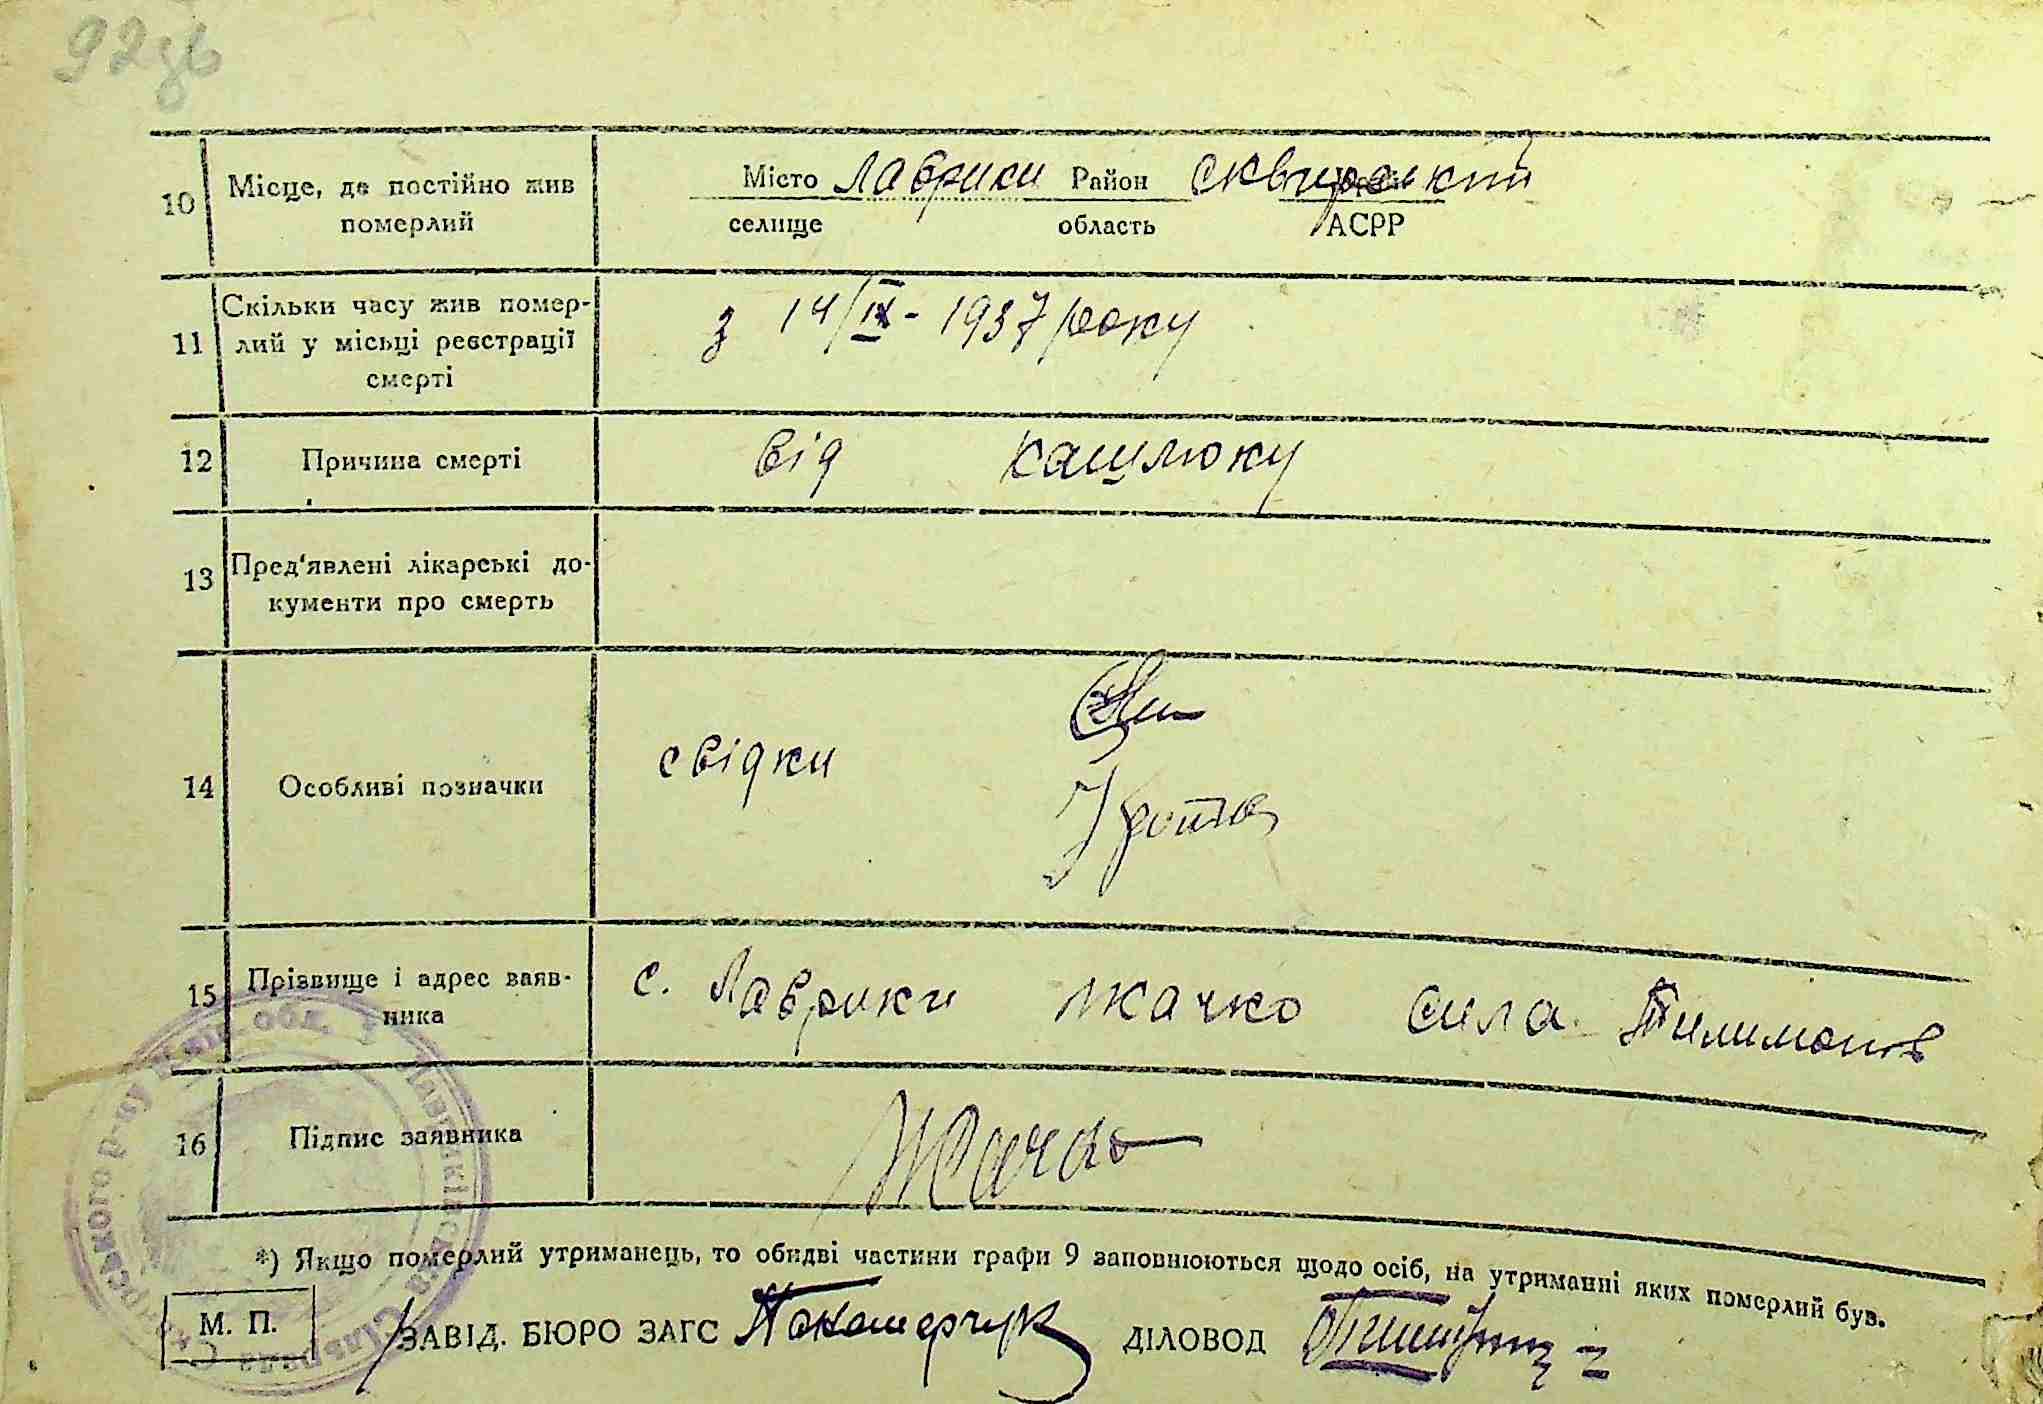 92зв
10 Місце, де постійно жив померлий
Місто Лаврики Район Сквирський
селище область АСРР
11 Скільки часу жив помер-
лий у місьці реєстрації
смерті
з 14/IX - 1937 року
12 Причина смерті від кашлюку
13 Пред'явлені лікарські до-
кументи про смерть
14 Особливі позначки свідки
15 Прізвище і адрес заяв-
ника
с. Лаврики Ткачко Сила Тилимонів
16 Підпис заявника
*) Якщо померлий утриманець, то обидві частини графи 9 заповнюються щодо осіб, на утриманні яких померлий був.
М. П. ЗАВІД. БЮРО ЗАГС ДІЛОВОД
Лавриківська Сільрада Сквирського р-ну Київ. обл.